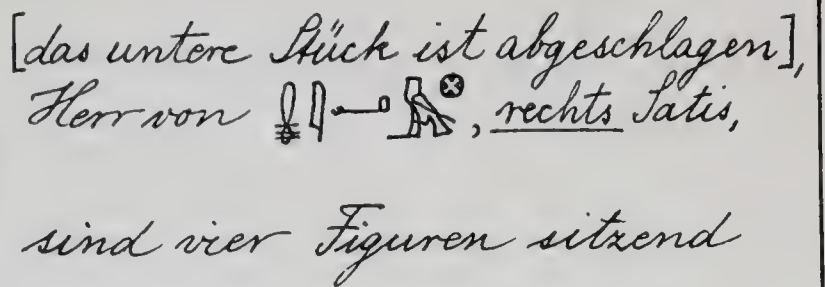 [das untere Stück ist abgeschlagen],
Herr von , rechts Satis,
sind vier Figuren sitzend